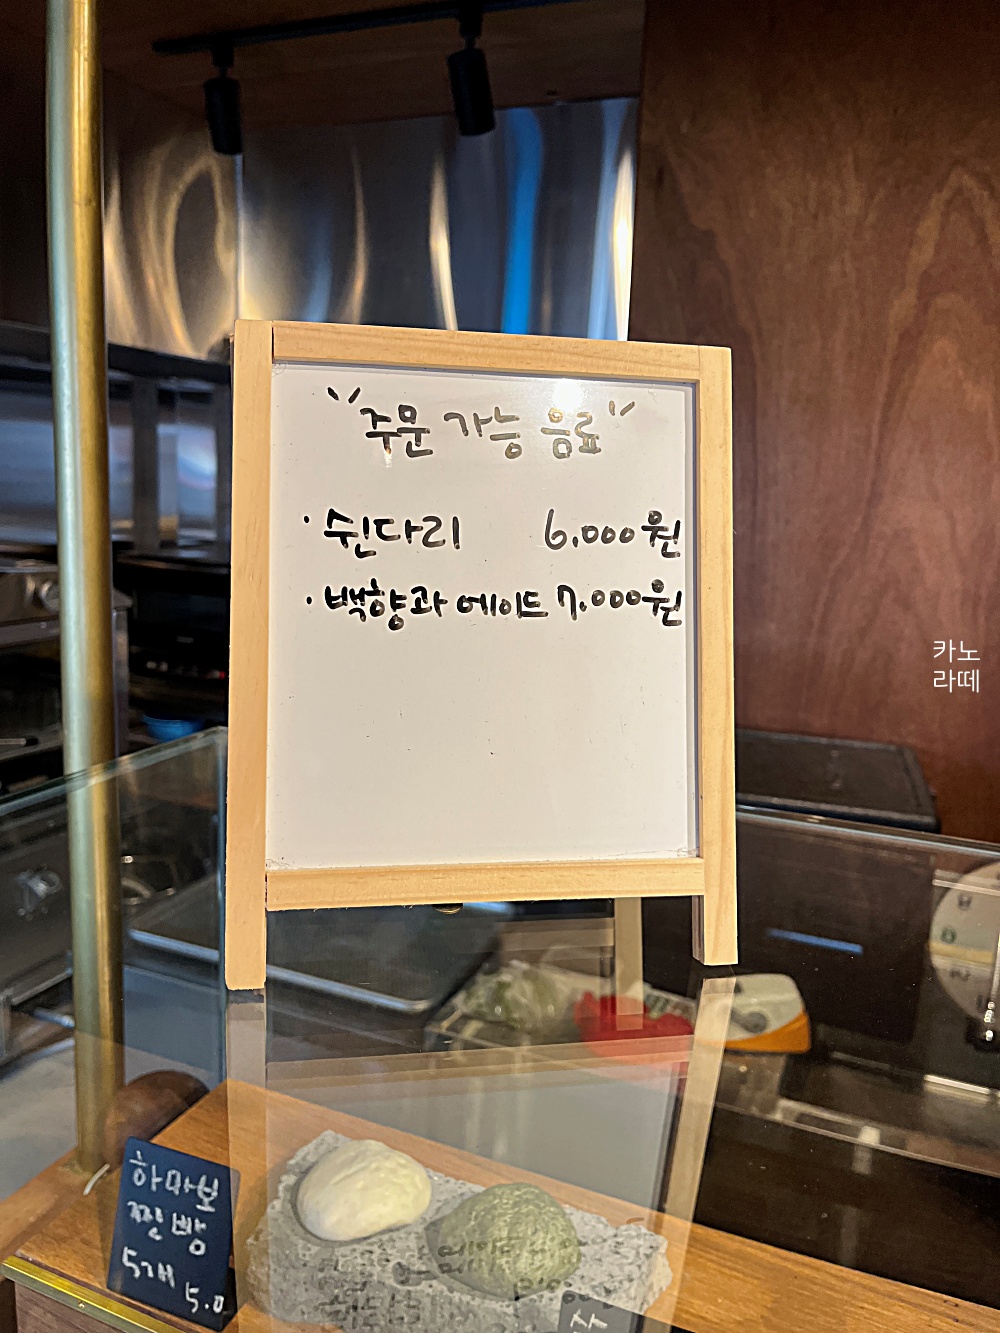 "주문 가능 음료"
· 쉰다리 6,000원
· 백향과 에이드 7,000원
카노
라떼
하마보
찐빵
5개
5.0